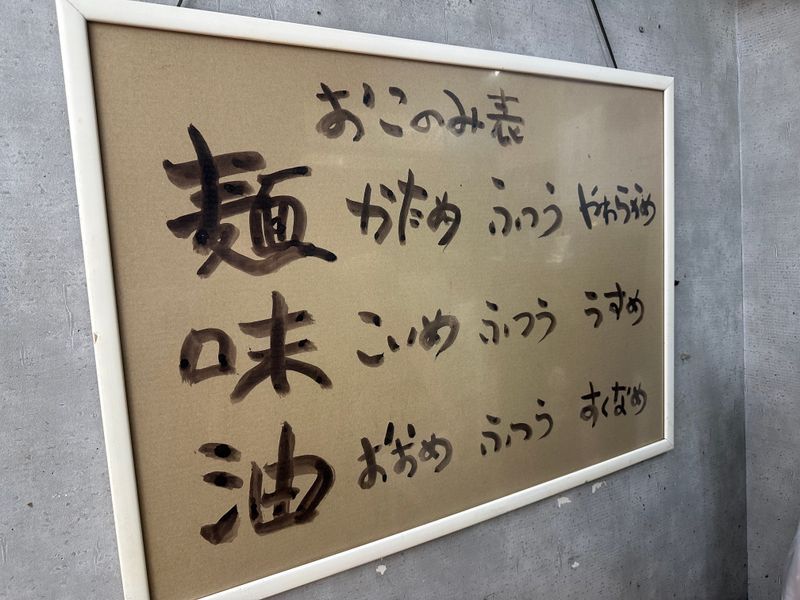 おこのみ表
麺 かため ふつう やわらかめ
味 こいめ ふつう うすめ
油 おおめ ふつう すくなめ